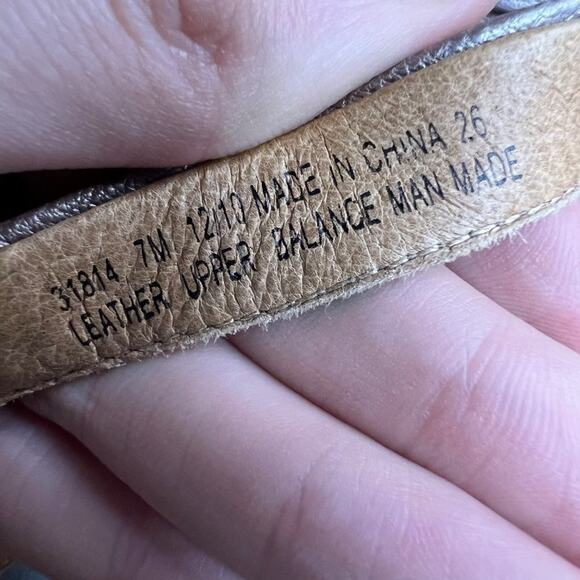 31814 7M 12/10 MADE IN CHINA 26
LEATHER UPPER BALANCE MAN MADE